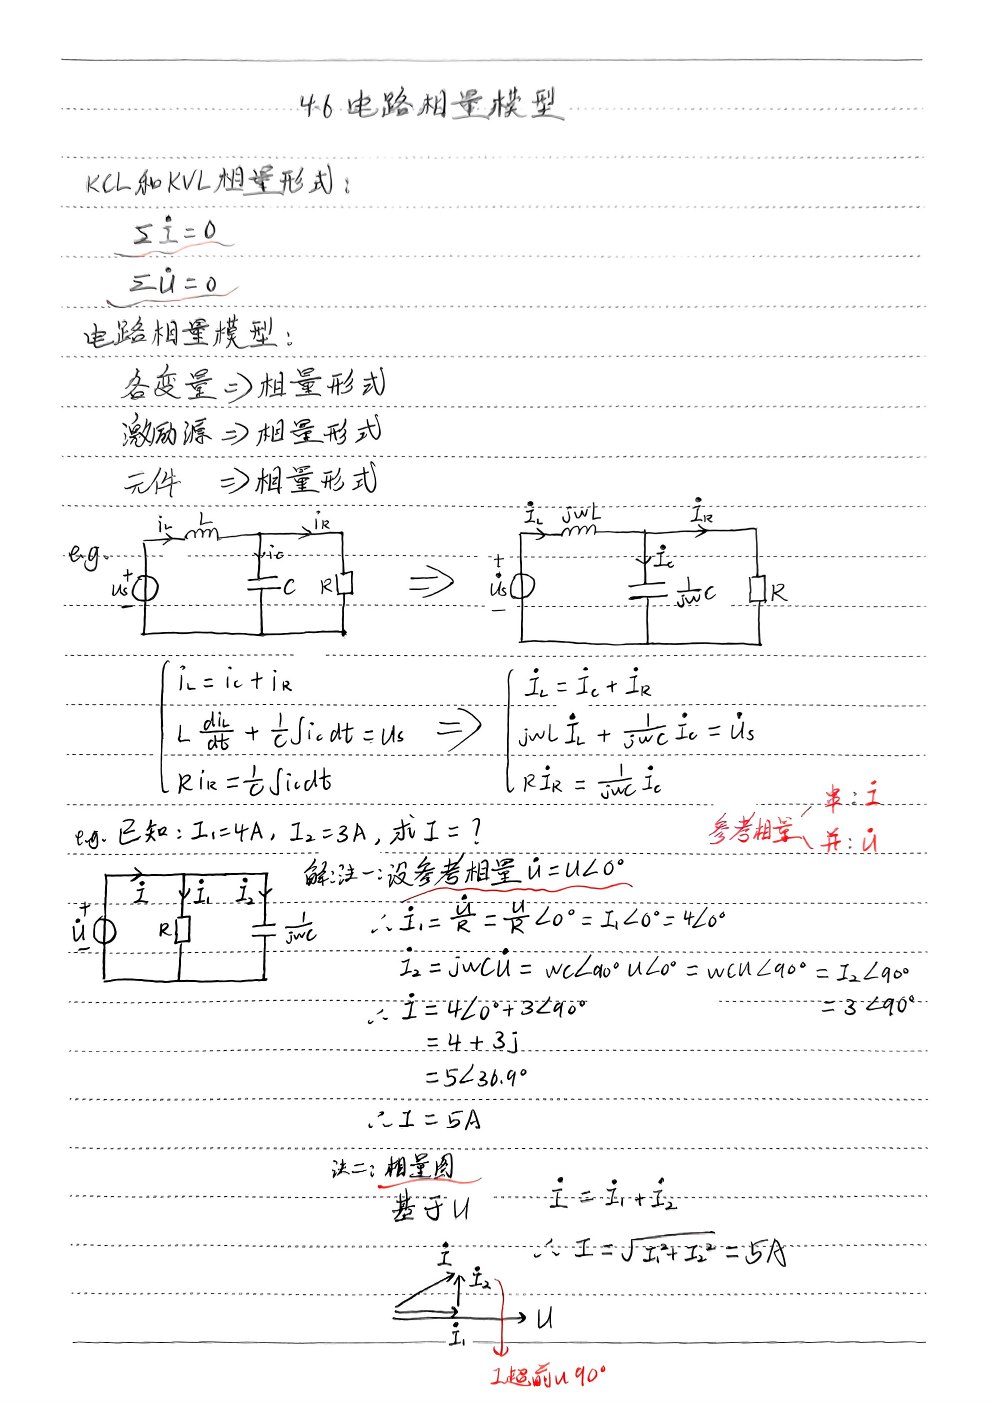 4.6 电路相量模型
KCL和KVL相量形式:
Σİ=0
ΣU̇=0
电路相量模型:
各变量⇒相量形式
激励源⇒相量形式
元件 ⇒相量形式
e.g. iL L iR ic us + − C R ⇒ İL jwL İR İc + U̇s − 1/jwC R
iL = ic + iR ⇒ İL = İc + İR
L diL/dt + 1/C ∫icdt = us ⇒ jwL İL + 1/jwC İc = U̇s
R iR = 1/C ∫icdt R İR = 1/jwC İc
参考相量 串: İ
并: U̇
e.g. 已知: I₁=4A, I₂=3A, 求I=?
+ U̇ − İ İ₁ İ₂ R 1/jwC
解:法一:设参考相量 U̇=U∠0°
∴ İ₁ = U̇/R = U/R ∠0° = I₁∠0° = 4∠0°
İ₂ = jwCU̇ = wC∠90° U∠0° = wCU∠90° = I₂∠90°
= 3∠90°
∴ İ = 4∠0° + 3∠90°
= 4 + 3j
= 5∠36.9°
∴ I = 5A
法二: 相量图
基于U
İ = İ₁ + İ₂
∴ I = √(I₁²+I₂²) = 5A
İ İ₂ İ₁ U
I超前u 90°